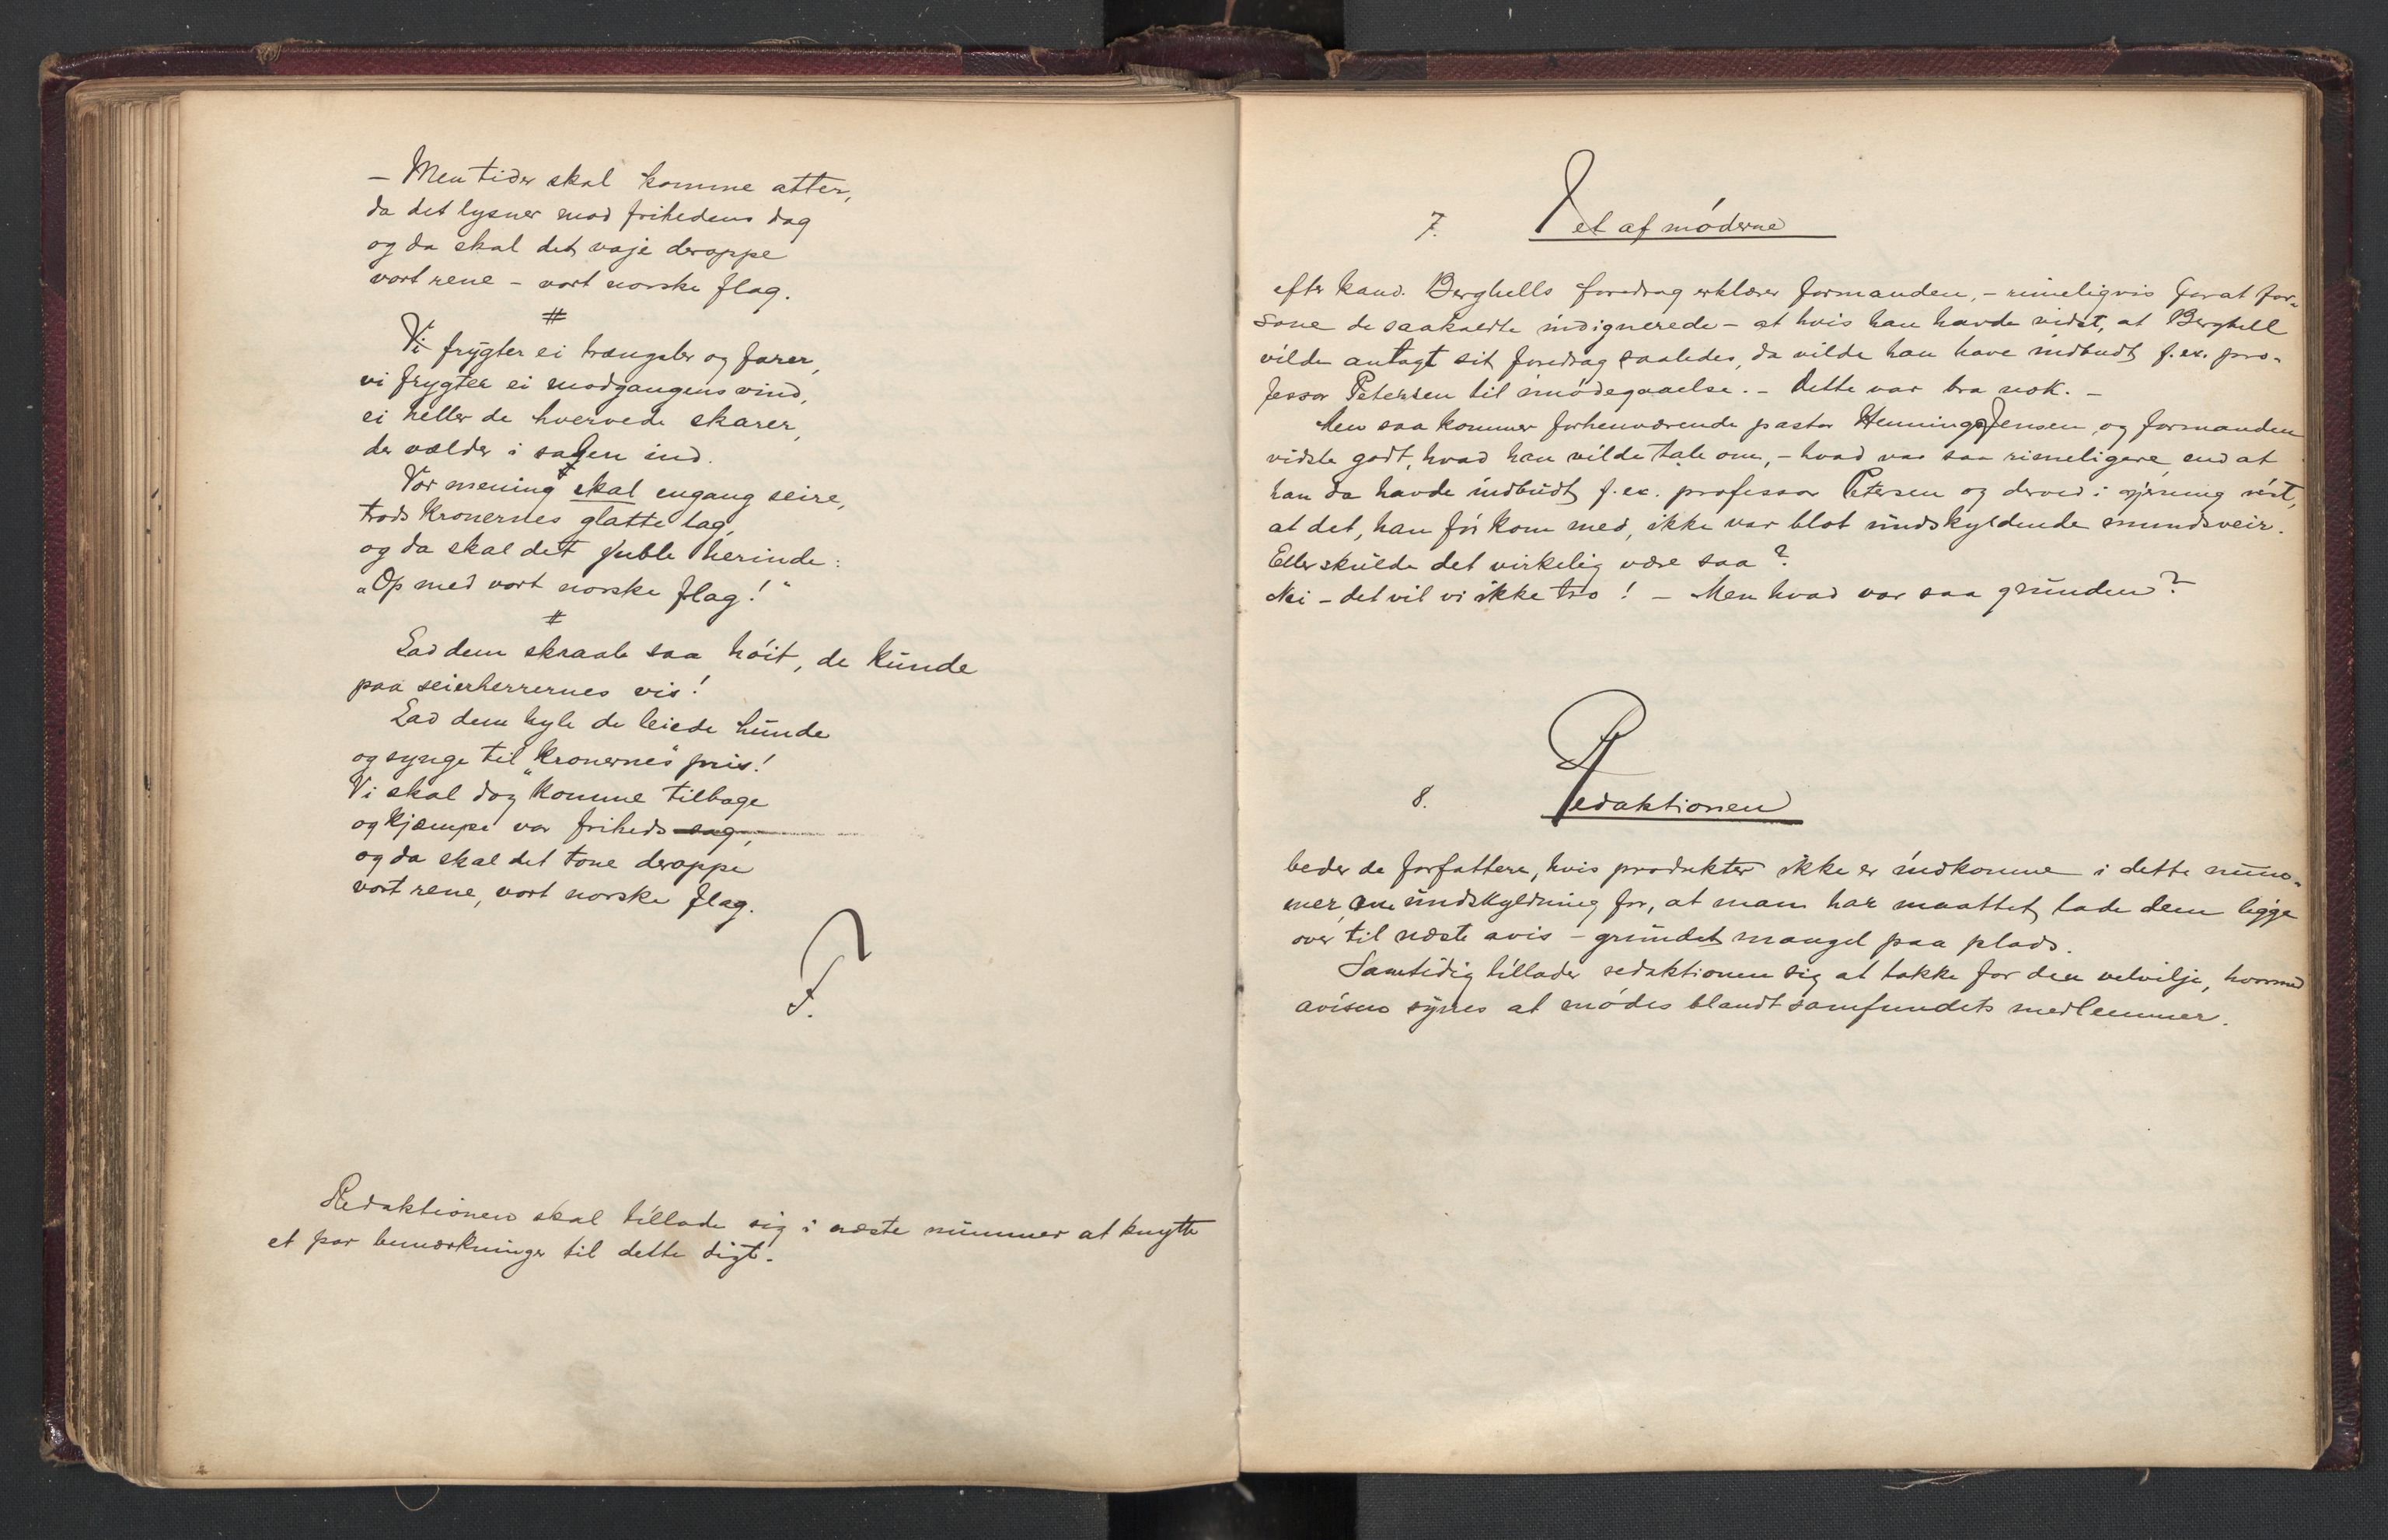 – Men tider skal komme atter,
da det lysner mod frihedens dag
og da skal det vaje deroppe
vort rene – vort norske flag.
#
Vi frygter ei trængsler og farer,
vi frygter ei modgangens vind,
ei heller de hvervede skarer,
der vælder i salen ind.
Vor mening skal engang seire,
trods kronernes glatte lag,
og da skal det juble herinde:
„Op med vort norske flag!"
#
Lad dem skraale saa høit, de kunde
paa seierherrernes vis!
Lad dem hyle de leiede hunde
og synge til „kronernes" pris!
Vi skal dog komme tilbage
og kjæmpe vor friheds sag,
og da skal det tone deroppe
vort rene, vort norske flag.
F.
Redaktionen skal tillade sig i næste nummer at knytte
et par bemærkninger til dette digt.
7. I et af møderne
efter kand. Berghells foredrag erklærer formanden, – rimeligvis for at for-
sone de saakaldte indignerede – at hvis han havde vidst, at Berghell
vilde antagt sit foredrag saaledes, da vilde han have indbudt f. ex. pro-
fessor Petersen til imødegaaelse. – Dette var bra nok. –
Men saa kommer forhenværende pastor Hennings Jensen, og formanden
vidste godt, hvad han vilde tale om, – hvad var saa rimeligere end at
han da havde indbudt f. ex. professor Petersen og derved i gjerning vist,
at det, han før kom med, ikke var blot undskyldende mundsveir.
Eller skulde det virkelig være saa?
Nei – det vil vi ikke tro! – Men hvad var saa grunden?
8. Redaktionen
beder de forfattere, hvis produkter ikke er indkomne i dette num-
mer, om undskyldning for, at man har maattet lade dem ligge
over til næste avis – grundet mangel paa plads.
Samtidig tillader redaktionen sig at takke for den velvilje, hvormed
avisen synes at mødes blandt samfundets medlemmer.